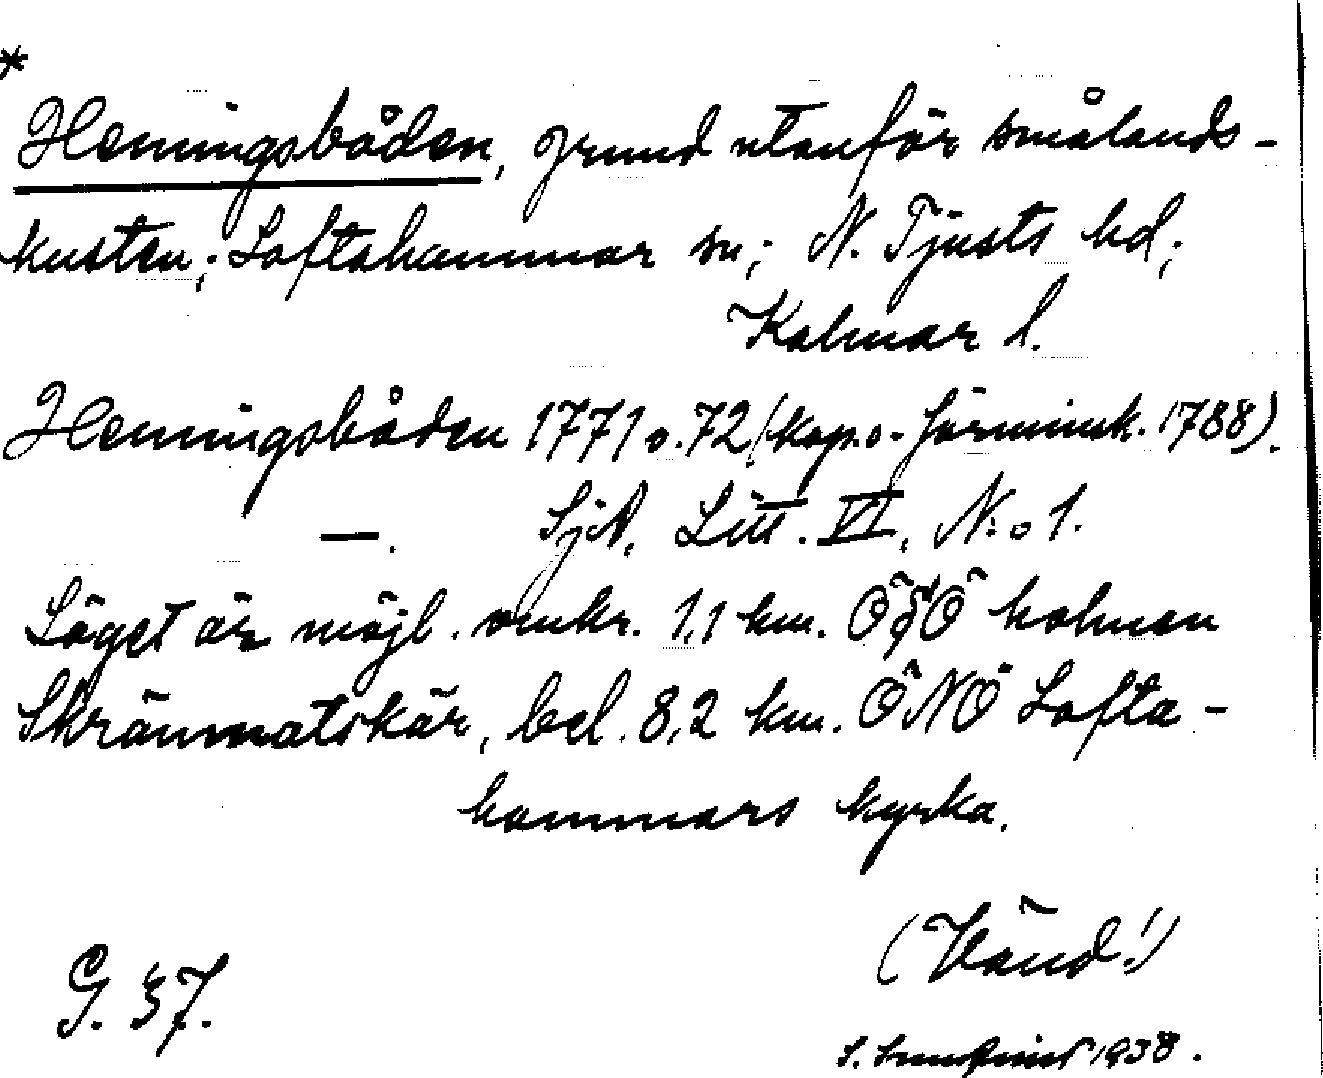 *
Henningsbåden, grund utanför smålands-
kusten; Loftahammar sn; N. Tjusts hd;
Kalmar l.
Henningsbåden 1771 o. 72 (kop. o. förminsk. 1788).
—. SjA, Litt. VI, N:o 1.
Läget är möjl. omkr. 1,1 km. ÖSÖ holmen
Skrämmatskär, bel. 8,2 km. ÖNÖ Lofta-
hammars kyrka.
(Vänd!)
G. 37.
1938.